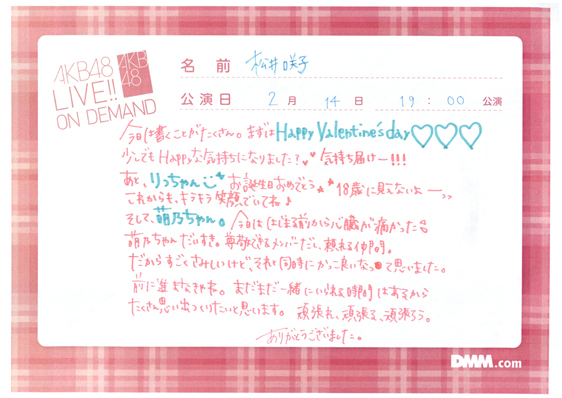 AKB48
LIVE!!
ON DEMAND
AKB
48
名前 松井咲子
公演日 2月 14日 19:00 公演
今日は書くことがたくさん。まずはHappy Valentine's day♡♡♡
少しでもHappyな気持ちになりました？♥♥ 気持ち届けー!!!
あと、りっちゃん お誕生日おめでとう 18歳に見えないよー
これからも、キラキラ笑顔でいてね♪
そして、萌乃ちゃん。今日は 前から心臓が痛かった
萌乃ちゃんだいすき。尊敬できるメンバーだし、頼れる仲間。
だからすごくさみしいけど、それと同時にかっこ良いなって思いました。
前に進まなきゃね。まだまだ一緒にいられる時間はあるから
たくさん思い出つくりたいと思います。頑張れ、頑張る、頑張ろう。
ありがとうございました。
DMM.com